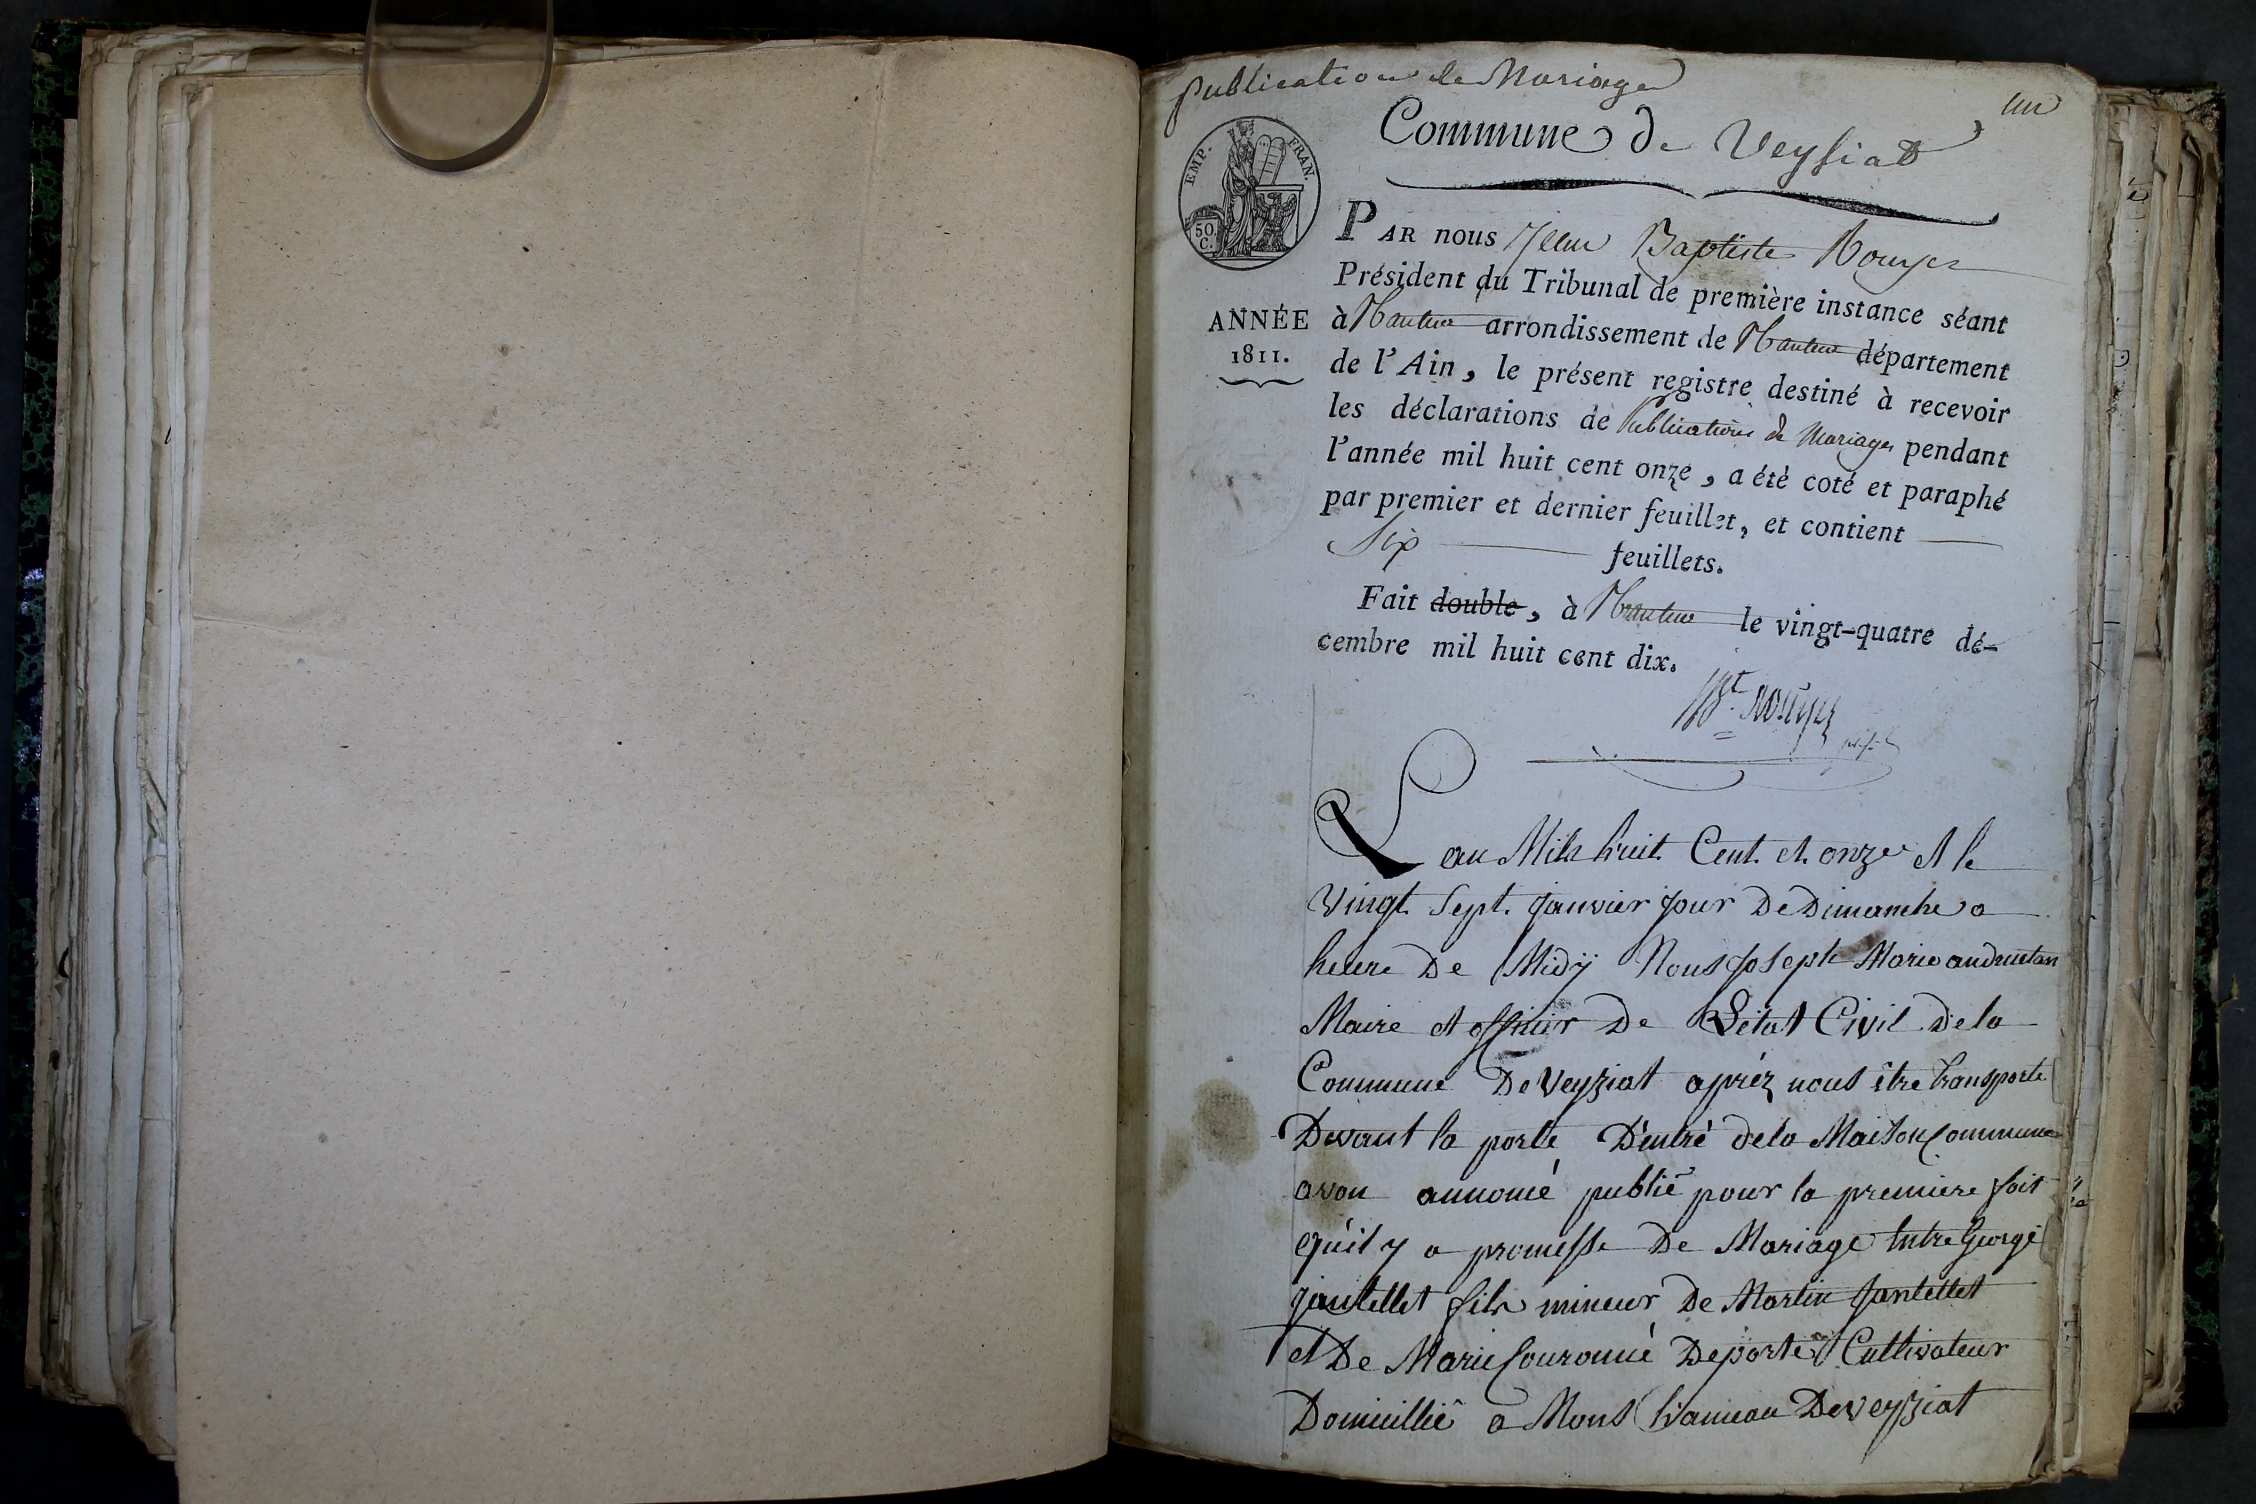 Publication de Mariage
un
Commune de Veysiat
EMP. FRAN.
50. C.
PAR nous Jean Baptiste Rouyer
Président du Tribunal de première instance séant
ANNÉE
1811.
à Nantua arrondissement de Nantua département
de l'Ain, le présent registre destiné à recevoir
les déclarations de Publications de Mariages pendant
l'année mil huit cent onze, a été coté et paraphé
par premier et dernier feuillet, et contient
Six feuillets.
Fait double, à Nantua le vingt-quatre dé-
cembre mil huit cent dix.
Bt. Rouyer
Lan Mils huit Cent et onze et le
Vingt Sept Janvier Jour De Dimanche a
heure De Midÿ Nous Joseph Marie andruetan
Maire et officier De Létat Civil Dela
Commune De Veyziat apréz nous être transporte
Devant la porte D'entré dela Maison Commune
avon annoncé publié pour la premiere foit
qu'il y a promesse De Mariage Entre George
Jantellet fils mineur De Martin Jantellet
et De Marie Couronné Deporte Cultivateur
Domicillié a Mons hameau De Veyziat